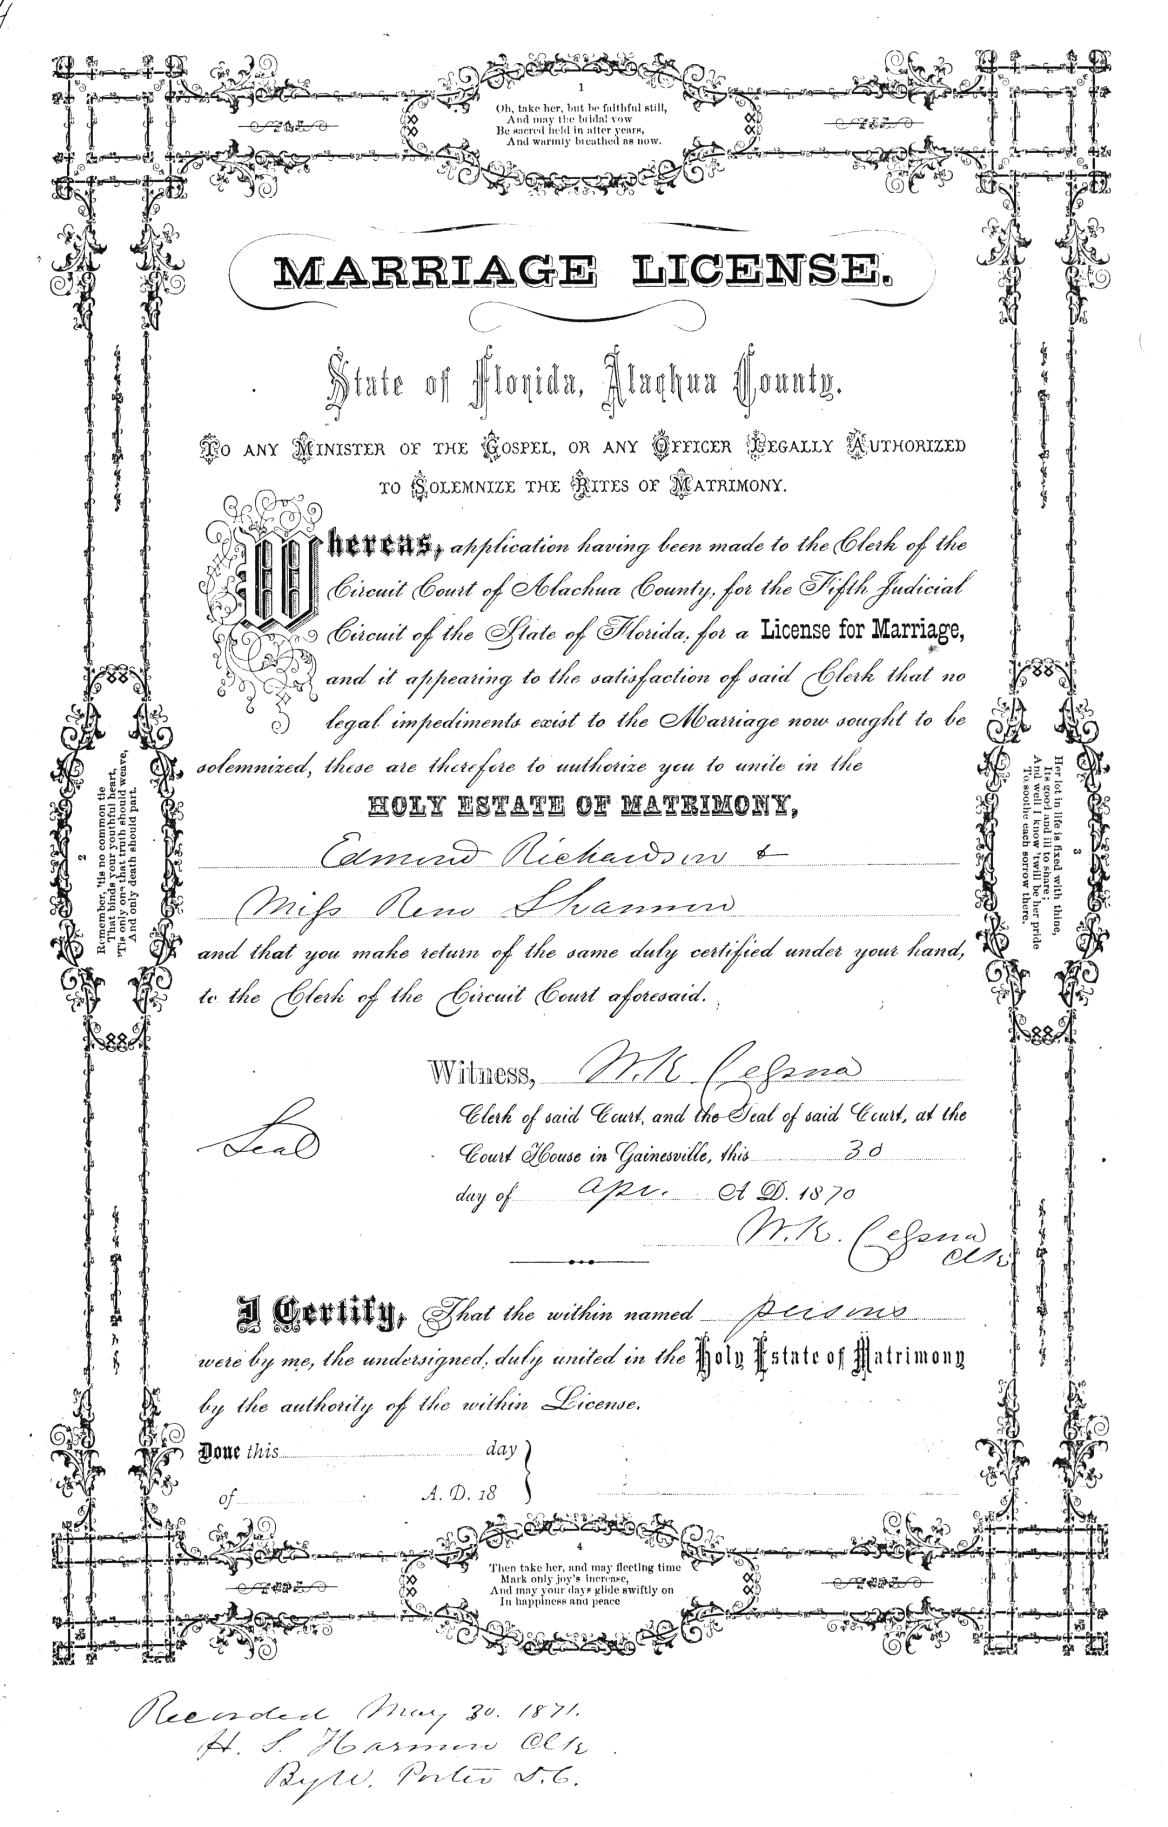 1
Oh, take her, but be faithful still,
And may the bridal vow
Be sacred held in after years,
And warmly breathed as now.
MARRIAGE LICENSE.
State of Florida, Alachua County.
TO ANY MINISTER OF THE GOSPEL, OR ANY OFFICER LEGALLY AUTHORIZED
TO SOLEMNIZE THE RITES OF MATRIMONY.
Whereas, application having been made to the Clerk of the
Circuit Court of Alachua County, for the Fifth Judicial
Circuit of the State of Florida, for a License for Marriage,
and it appearing to the satisfaction of said Clerk that no
legal impediments exist to the Marriage now sought to be
solemnized, these are therefore to authorize you to unite in the
HOLY ESTATE OF MATRIMONY,
Edmond Richardson &
Miss Reno Shannon
and that you make return of the same duly certified under your hand,
to the Clerk of the Circuit Court aforesaid.
2
Remember, 'tis no common tie
That binds your youthful heart,
'Tis only one that truth should weave,
And only death should part.
3
Her lot in life is fixed with thine,
Its good and ill to share;
And well I know 'twill be her pride
To soothe each sorrow there.
Witness, W. K. Cessna
Clerk of said Court, and the Seal of said Court, at the
Seal
Court House in Gainesville, this 30
day of Apr. A. D. 1870
W. K. Cessna
Clk
I Certify, That the within named persons
were by me, the undersigned, duly united in the Holy Estate of Matrimony
by the authority of the within License.
Done this day
of A. D. 18
4
Then take her, and may fleeting time
Mark only joy's increase,
And may your days glide swiftly on
In happiness and peace
Recorded May 30. 1871.
H. S. Harmon Clk
By W. Porter D. C.